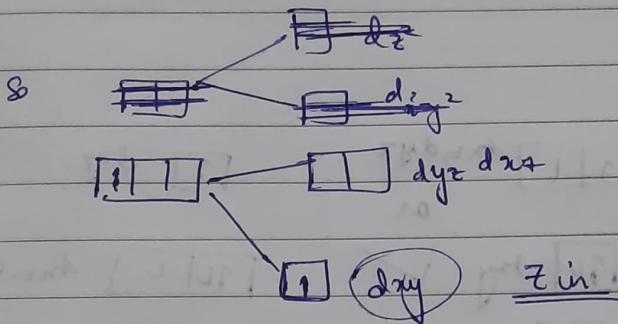 So
dz²
dx²y²
1 dyz dxz
1 dxy Z in